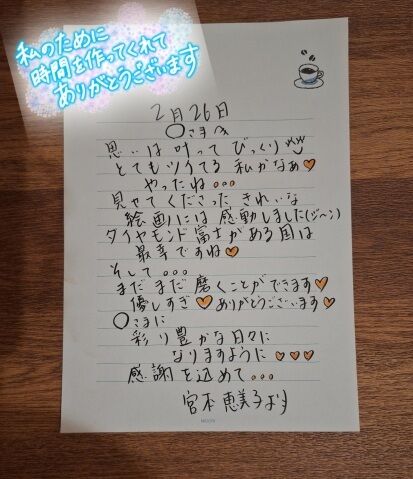 私のために
時間を作ってくれて
ありがとうございます
2月26日
○さまへ
思いは叶って びっくり
とてもツイてる 私かなぁ♥
やったね...
見せてくださった きれいな
絵画には 感動しました(ジ〜ン)
ダイヤモンド富士がある国は
最幸ですね♥
そして...
まだまだ 磨くことができます♥
優しすぎ♥ありがとうございます♥
○さまに
彩り豊かな日々に
なりますように♥♥♥
感謝を込めて...
宮本 恵美子より